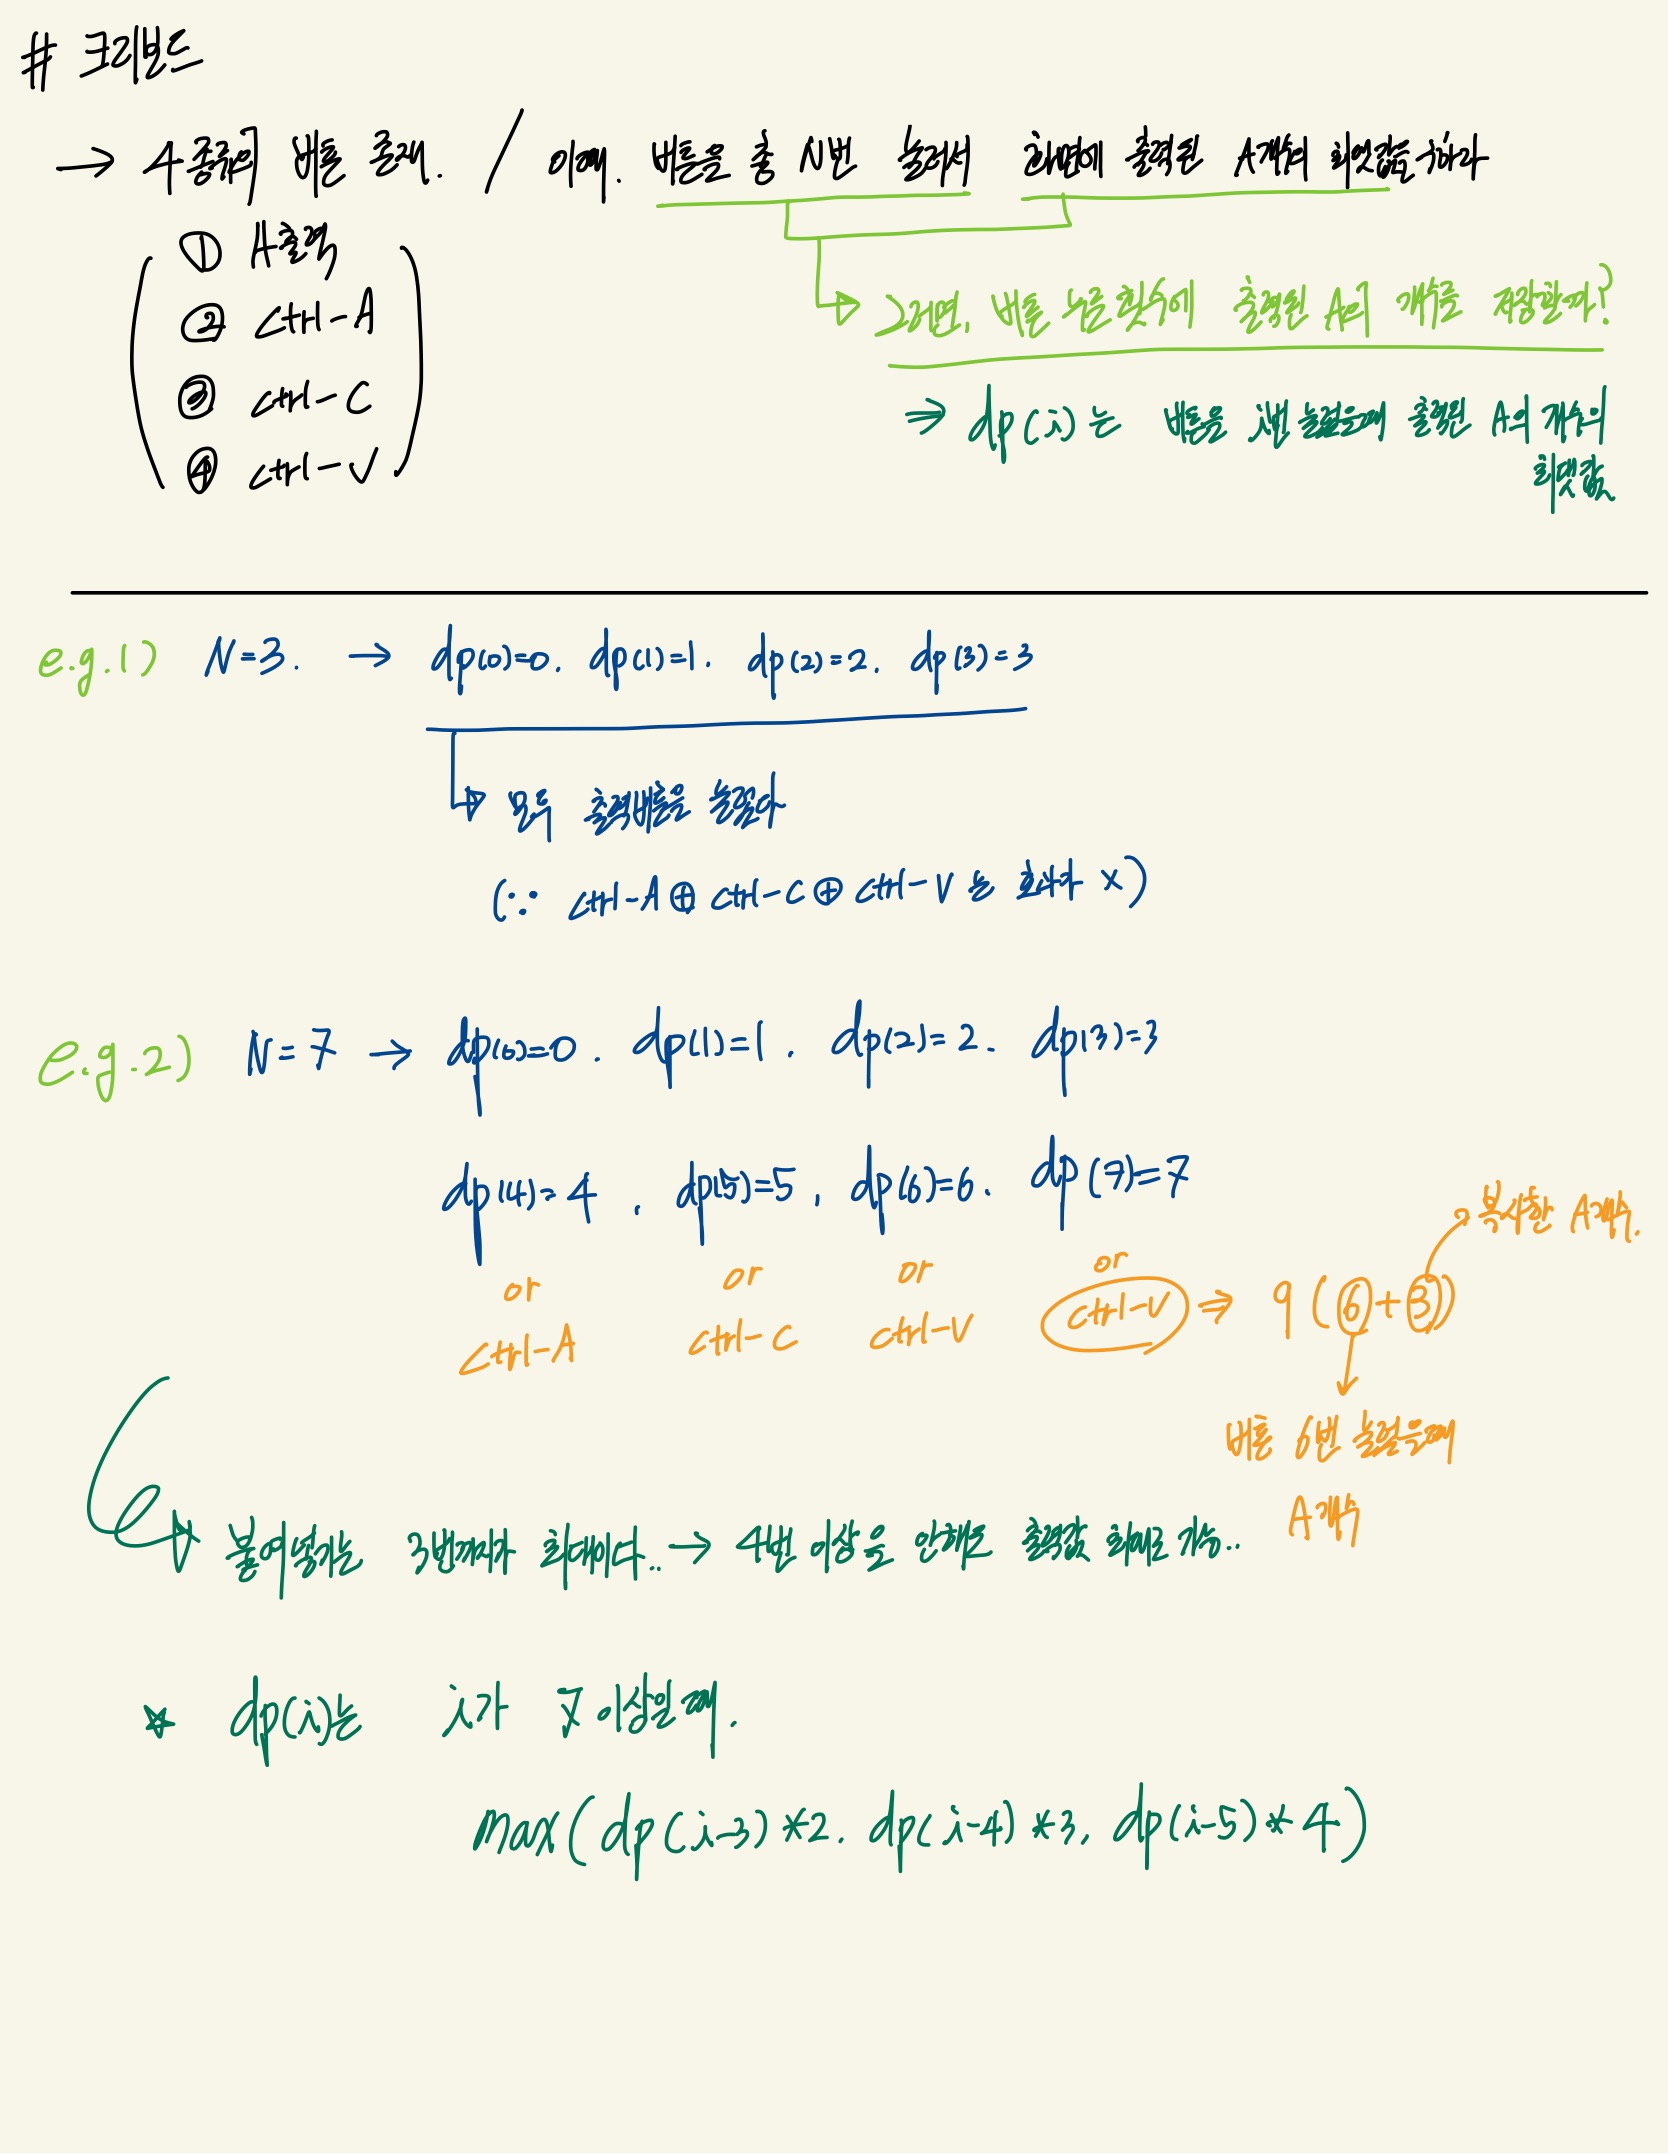 # 크리보드
→ 4종류의 버튼 존재. / 이때. 버튼을 총 N번 눌러서 화면에 출력된 A개수의 최댓값을 구하라
① A출력
② ctrl-A
③ ctrl-C
④ ctrl-V
그러면, 버튼 누른 횟수에 출력된 A의 개수를 저장할까?
⇒ dp(i)는 버튼을 i번 눌렀을때 출력된 A의 개수의
최댓값
e.g.1) N=3. → dp(0)=0. dp(1)=1. dp(2)=2. dp(3)=3
모두 출력버튼을 눌렀다
(∵ ctrl-A ⊕ ctrl-C ⊕ ctrl-V 는 효과 x)
e.g.2) N=7 → dp(0)=0. dp(1)=1. dp(2)=2. dp(3)=3
dp(4)=4, dp(5)=5, dp(6)=6. dp(7)=7
복사한 A개수.
or or or or
ctrl-A ctrl-C ctrl-V ctrl-V ⇒ 9 (6+3)
버튼 6번 눌렀을때
A개수
붙여넣기는 3번까지가 최대이다.. → 4번 이상을 안해도 출력값 최대로 가능..
☆ dp(i)는 i가 7 이상일 때.
max(dp(i-3)*2. dp(i-4)*3, dp(i-5)*4)